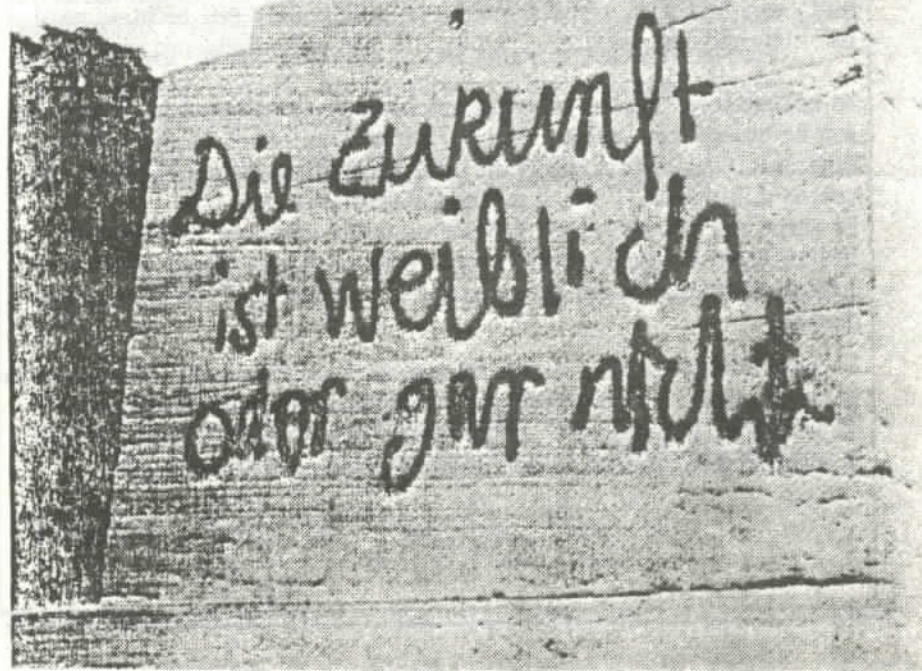 Die Zukunft
ist weiblich
oder gar nicht